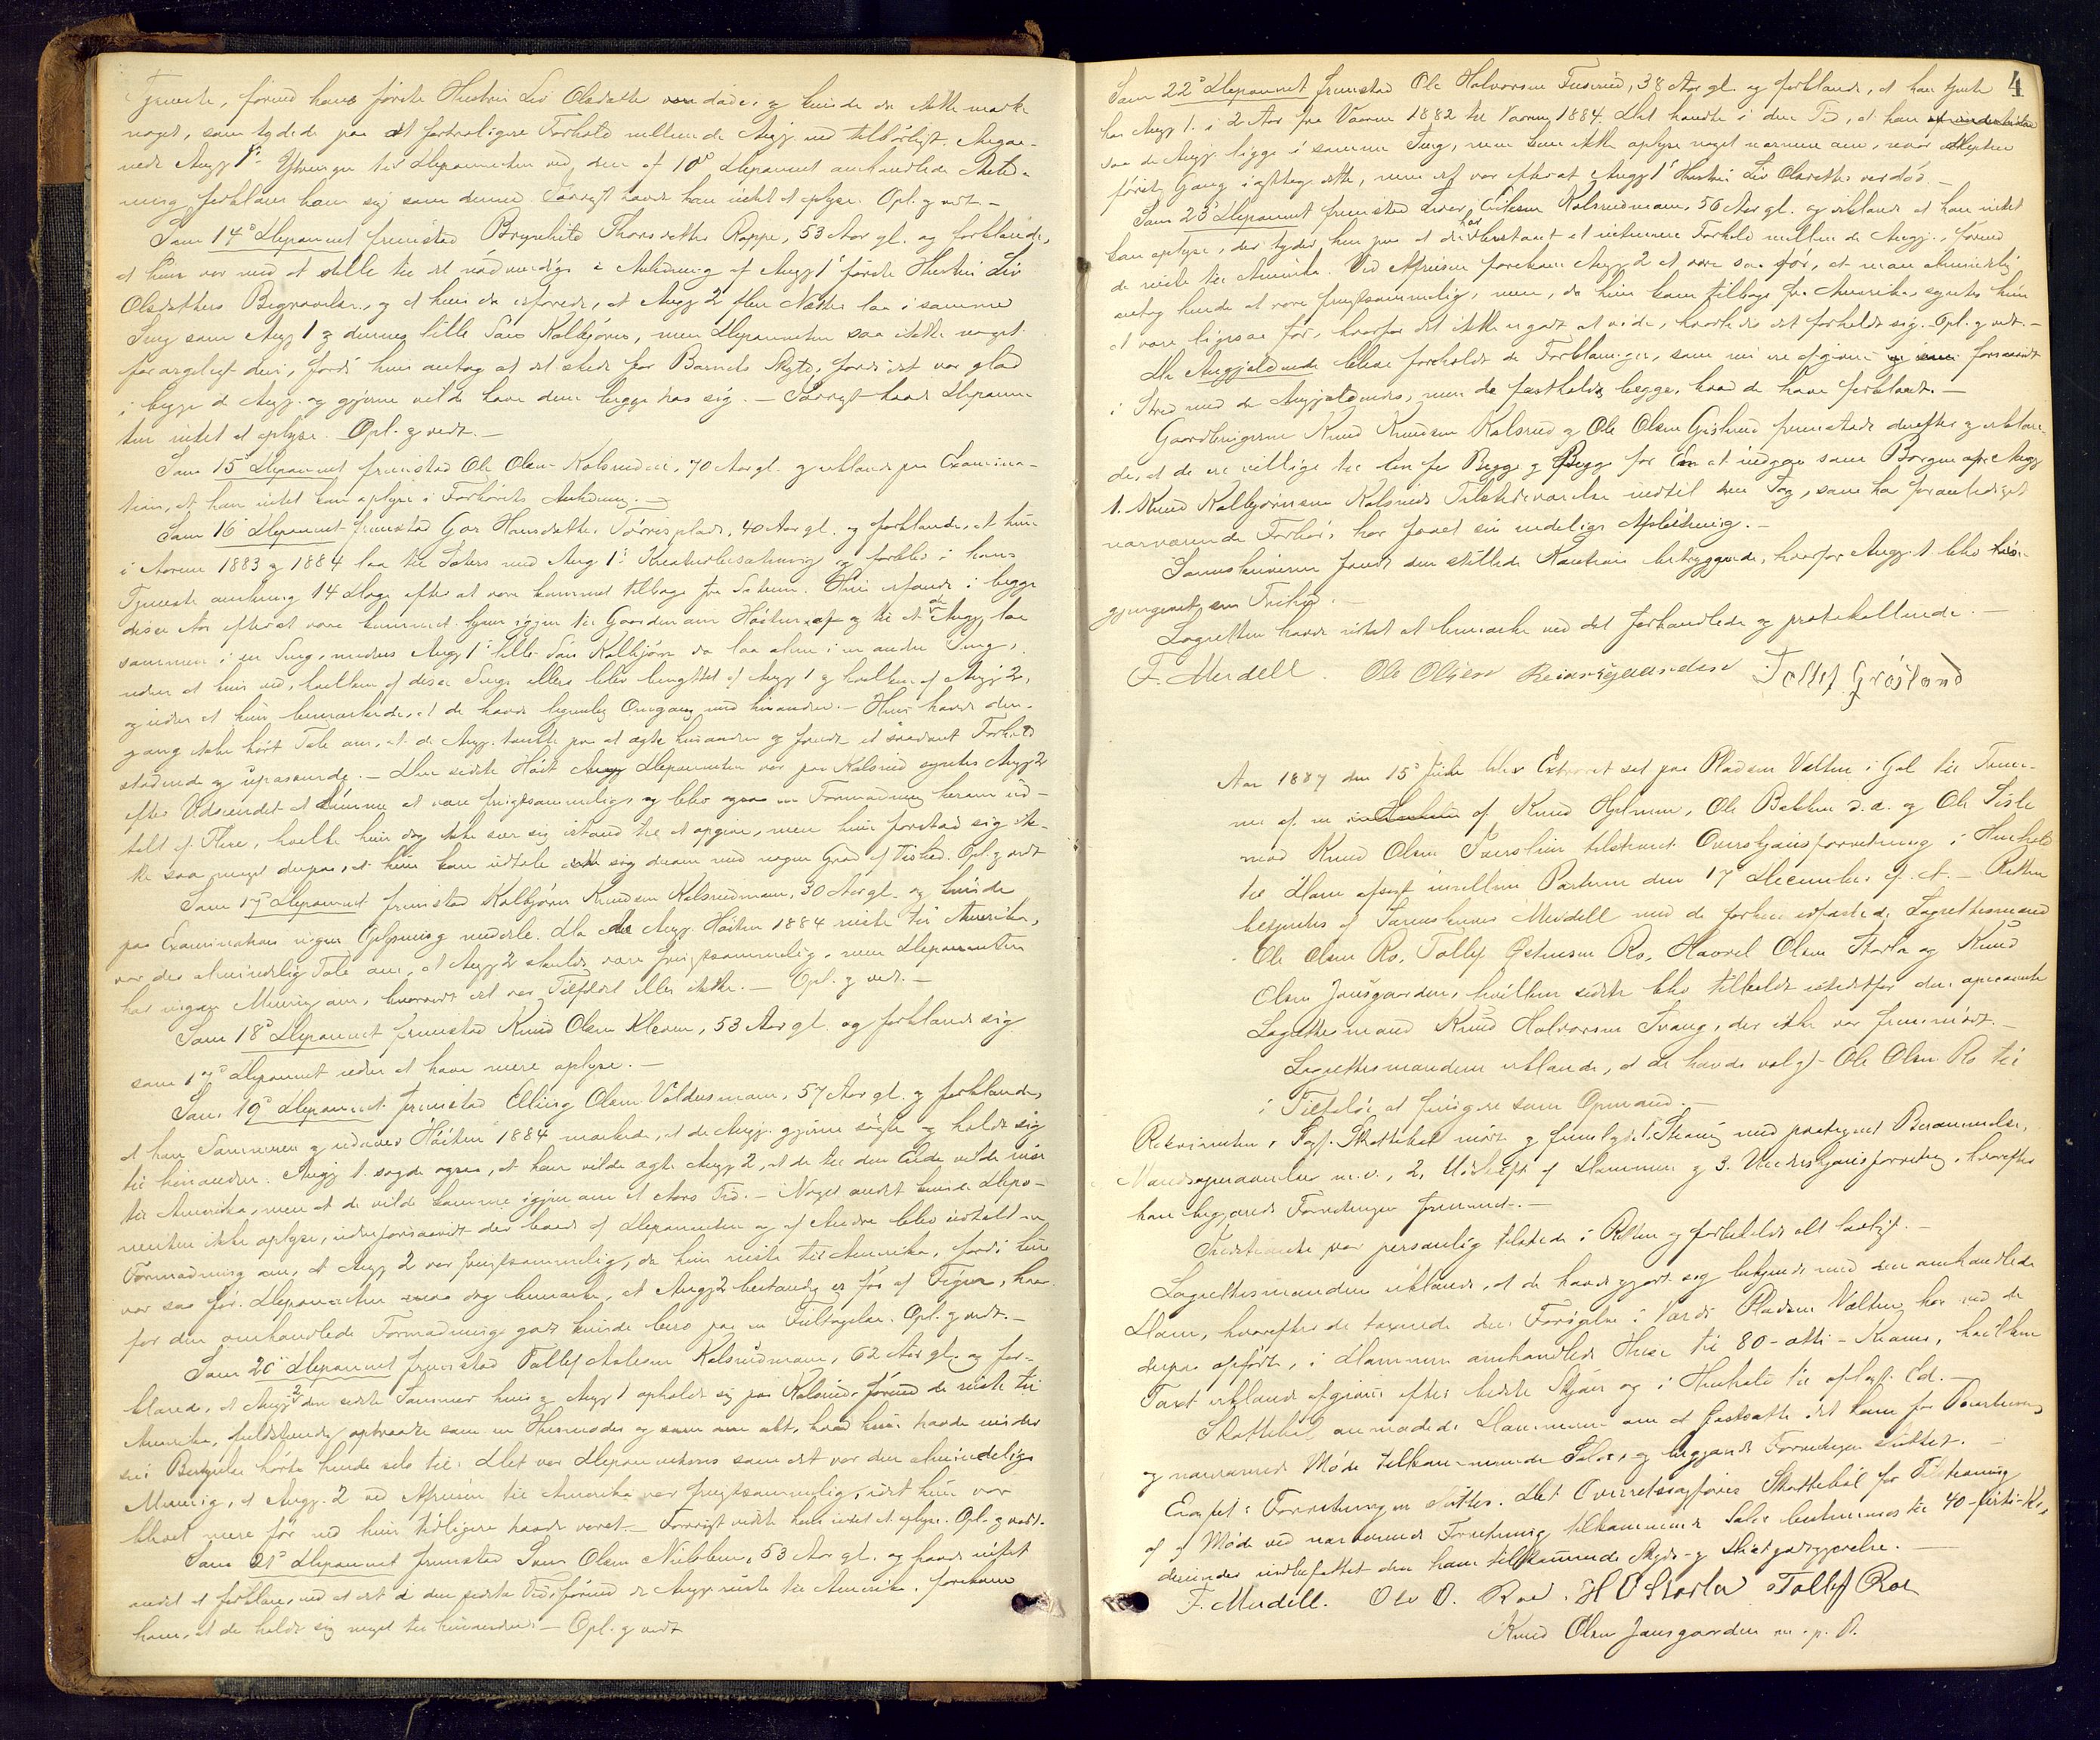 Tjeneste, förend hans förste Hustru Liv Olsdatter var död, og kunde da ikke mærke
noget, som tydede paa et fortroligere Forhold mellem de Angj. end tilbörligt. Angaa-
ende Angj. 1s Ytringer til Deponenten ved den af 10de Deponent omhandlede Anled-
ning forklarer han sig som denne. Forövrigt havde han intet at oplyse. Opl. g. vedt. -
Som 14de Deponent fremstod Brynhild Thorsdatter Roppe, 53 Aar gl. og forklarede,
at hun var med at stelle til det nödvendige i Anledning af Angj. 1s förste Hustru Liv
Olsdatters Begravelse, og at hun da erfarede, at Angj. 2 flere Nætter laa i samme
Seng som Angj. 1 og dennes lille Sön Kolbjörn, men Deponenten saa ikke noget
forargeligt deri, fordi hun antog at det skede for Barnets Skyld, fordi det var glad
i begge de Angj. og gjerne vilde have dem begge hos sig. - Forövrigt havde Deponen-
ten intet at oplyse. Opl. g. vedt. -
Som 15de Deponent fremstod Ole Olsen Kolsrudeie, 70 Aar gl. og erklærede paa Examina-
tion, at han intet kan oplyse i Forhörets Anledning. -
Som 16de Deponent fremstod Gro Hansdatter Törresplads, 40 Aar gl. og forklarede, at hun
i Aarene 1883 og 1884 laa til Sæters med Angj. 1s Kreaturbesætning og forblev i hans
Tjeneste omkring 14 Dage efter at være kommet tilbage fra Sæteren. Hun erfarede i begge
disse Aar efter at være kommet hjem igjen til Gaarden om Hösten og til at de Angj. laa
sammen i en Seng, medens Angj. 1s lille Sön Kolbjörn da laa alene i en anden Seng,
uden at hun ved, hvilken af disse Senge ellers blev benyttet af Angj. 1 og hvilken af Angj. 2,
og uden at hun bemærkede, at de havde legemlig Omgang med hinanden. - Hun havde den-
gang ikke hört Tale om, at de Angj. tænkte paa at ægte hinanden og fandt et saadant Forhold
stödende og upassende. - Den sidste Höst Deponenten var paa Kolsrud syntes Angj. 2
efter Udseendet at dömme at være frugtsommelig og blev ogsaa en Formodning herom ud-
talt af Flere, hvilke hun dog ikke ser sig istand til at opgive, men hun forstod sig ik-
ke saa meget derpaa, at hun kan udtale sig derom med nogen Grad af Vished. Opl. g. vedt
Som 17de Deponent fremstod Kolbjörn Knudsen Kolsrudmoen, 30 Aar gl. og kunde
paa Examination ingen Oplysning meddele. Da de Angj. Hösten 1884 reiste til Amerika,
var der almindelig Tale om, at Angj. 2 skulde være frugtsommelig, men Deponenten
har ingen Mening om, hvorvidt det var Tilfældet eller ikke. - Opl. g. vedt. -
Som 18de Deponent fremstod Knud Olsen Kleven, 53 Aar gl. og forklarede sig
som 17de Deponent uden at have mere oplyse. -
Som 19de Deponent fremstod Elling Olsen Voldersmoen, 57 Aar gl. og forklarede,
at han Sommeren og udover Hösten 1884 mærkede, at de Angj. gjerne sögte og holdt sig
til hinanden. Angj. 1. sagde ogsaa, at han vilde ægte Angj. 2, at de til den Ende vilde reise
til Amerika, men at de vilde komme igjen om et Aars Tid. - Noget andet kunde Depo-
nenten ikke oplyse, undtforsaavidt der baade af Deponenten og af Andre blev udtalt en
Formodning om, at Angj. 2 var frugtsommelig, da hun reiste til Amerika, fordi hun
var saa för. Deponenten maa dog bemærke, at Angj. 2 bestandig er för af Figur, hvor-
for den omhandlede Formodning godt kunde bero paa en Feiltagelse. Opl. g. vedt. -
Som 20de Deponent fremstod Tollef Asleson Kolsrudmoen, 62 Aar gl. og for-
klarede, at Angj. 2 den sidste Sommer hun og Angj. 1 opholdt sig paa Kolsrud, förend de reiste til
Amerika, fuldstændig optraadte som en Husmoder og som om alt, hvad hun havde under
sin Bestyrelse hörte hende selv til. Det var Deponentens som det var den almindelige
Mening, at Angj. 2 ved Afreisen til Amerika var frugtsommelig, idet hun var
blevet mere för end hun tidligere havde været. - Forövrigt vidste han intet at oplyse. Opl. g. vedt.
Som 21de Deponent fremstod Sven Olsen Nubben, 53 Aar gl. og havde intet
andet at forklare, end at det i den sidste Tid, förend de Angj. reiste til Amerika, forekom
ham, at de holdt sig meget til hinanden. - Opl. g. vedt
4
Som 22de Deponent fremstod Ole Halvorsen Tuserud, 38 Aar gl. og forklarede, at han tjente
hos Angj. 1. i 2 Aar fra Vaaren 1882 til Vaaren 1884. Det hændte i den Tid, at han
saa de Angj. ligge i samme Seng, men kan ikke oplyse noget nærmere om, naar Deponenten
förste Gang iagttog dette, men det var efterat Angj. 1s Hustru Liv Olsdatter var död. -
Som 23de Deponent fremstod Iver Eriksen Kolsrudmoen, 56 Aar gl. og erklærede at han intet
kan oplyse, der tyder hen paa at der har bestaaet et intimere Forhold mellem de Angj., förend
de reiste til Amerika. Ved Afreisen forekom Angj. 2 at være saa för, at man almindelig
antog hende at være frugtsommelig, men, da hun kom tilbage fra Amerika, syntes hun
at være ligesaa för, hvorfor det ikke er godt at vide, hvorledes det forholdt sig. Opl. g. vedt. -
De Angjældende bleve foreholdt de Forklaringer, som nu ere afgivne forsaavidt
i Strid med de Angjældendes, men de fastholdt begge, hvad de have forklaret. -
Gaardbrugerne Knud Knudsen Kolsrud og Ole Olsen Gislerud fremstode derefter og erklære-
de, at de ere villige til En for Begge og Begge for En at indgaa som Borgen for Angj.
1. Knud Kolbjörnsen Kolsruds Tilstedeværelse indtil den Sag, som har foranlediget
nærværende Forhör, har faaet sin endelige Afslutning. -
Sorenskriveren fandt den stillede Kaution betryggende, hvorfor Angj. 1 blev
gjengivet sin Frihed. -
Lagretten havde intet at bemærke ved det forhandlede og protokollerede. -
F. Meidell. Ole Olsen Tollef Gröslond
Aar 1887 den 15de blev Extraret sat paa Pladsen Valtne i Gol til Frem-
me af en af Knud Hjelmen, Ole Bakken d. æ. og Ole Sisle
mod Knud Olsen tilstævnet Overskjönsforretning i Henhold
til Dom afsagt imellem Parterne den 17de December f. A. - Retten
beskyttes af Sorenskriver Meidell med de forhen edfæstede Lagrettesmænd
Ole Olsen Ro, Tollef Ro, Haavel Olsen Storla og Knud
Olsen Jonsgaarden, hvilken sidste blev tilkaldt istedetfor den opnævnte
Lagrettesmand Knud Halvorsen Svang, der ikke var fremmödt. -
Lagrettesmændene erklærede, at de havde valgt Ole Olsen Ro til
i Tilfælde at fungere som Opmand. -
Rekvirenten, Sagf. Skattebøl mödte og fremlagde 1. Stevning med paategnet Berammelse,
Mændsopnævnelse m.v., 2, Udskrift af Dommen og 3. Underskjönsforretning, hvorefter
han begjærede Forretningen fremmet. -
Indstevnte var personlig tilstede i Retten og forbeholdt alt lovligt. -
Lagrettesmændene erklærede, at de havde gjort sig bekjendt med den omhandlede
Dom, hvorefter de taxerede den Forögelse i Værdi Pladsen Valtne har ved de
derpaa opförte, i Dommen omhandlede Huse til 80 - otti - Kroner, hvilken
Taxt erklæredes afgivet efter bedste Skjön og i Henhold til aflagt Ed. -
Skattebøl anmodede Dommeren om at fastsætte det ham for Udstevning
og nærværende Möde tilkommende Salær, og begjærede Forretningen sluttet. -
Eragtet: Forretningen sluttes. Det Overretssagförer Skattebøl for Udstevning
og Möde ved nærværende Forretning tilkommende Salær bestemmes til 40 - firti - Kr.,
derunder indbefattet den ham tilkommende Skyds- og Diætgodtgjørelse. -
F. Meidell. Ole O. Roe. H O Storla Tollef Roe
Knud Olsen Jonsgaarden m. p. P.